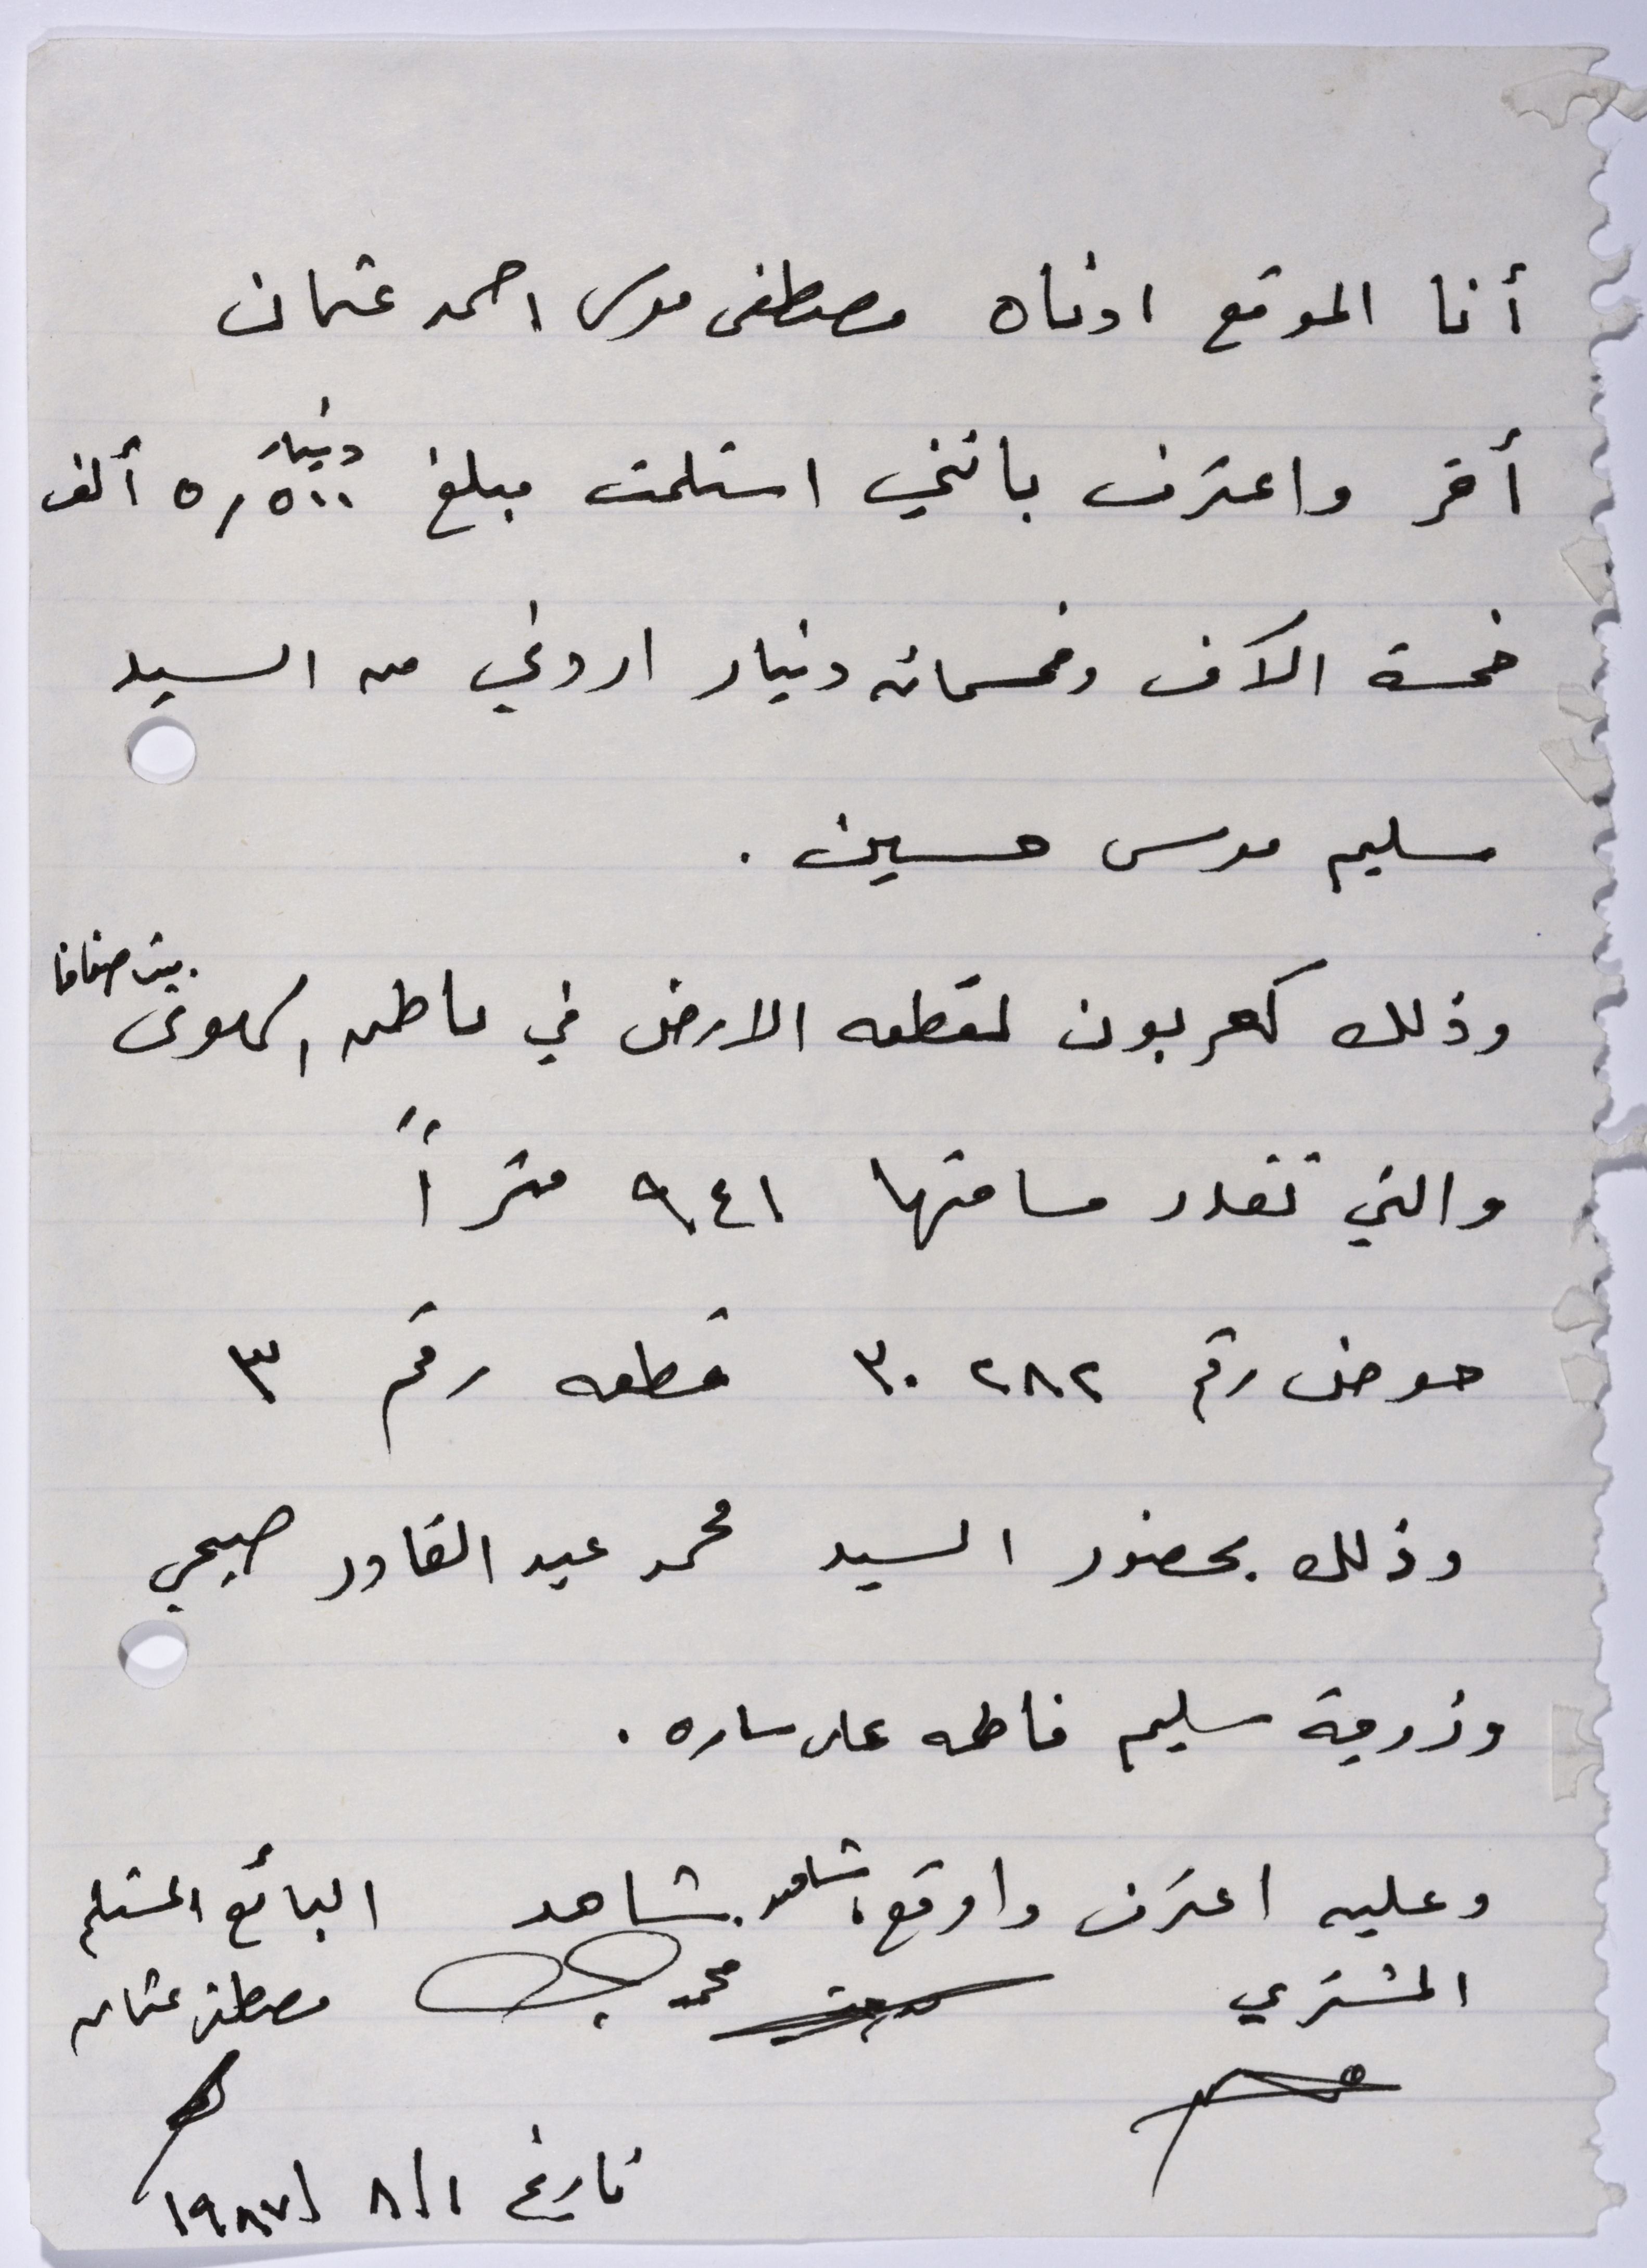 أنا الموقع ادناه مصطفى موسى احمد عثمان
أقر واعترف بانني استلمت مبلغ ٥,٥٠٠ دينار ألف
خمسة الاف وخمسمائه دينار اردني من السيد
سليم موسى حسين .
وذلك كعربون لقطعه الارض في بيت صفافا
والتي تقدر مساحتها ٩٤١ متراً
حوض رقم ٣٠٢٨٢ قطعه رقم ٣
وذلك بحضور السيد محمد عبد القادر صبحي
وزوجة سليم فاطمه ساره .
وعليه اعترف واوقع، شاهد شاهد البائع المستلم
المشتري محمد مصطفى عثمان
تاريخ ١/ ٨ /١٩٨٧